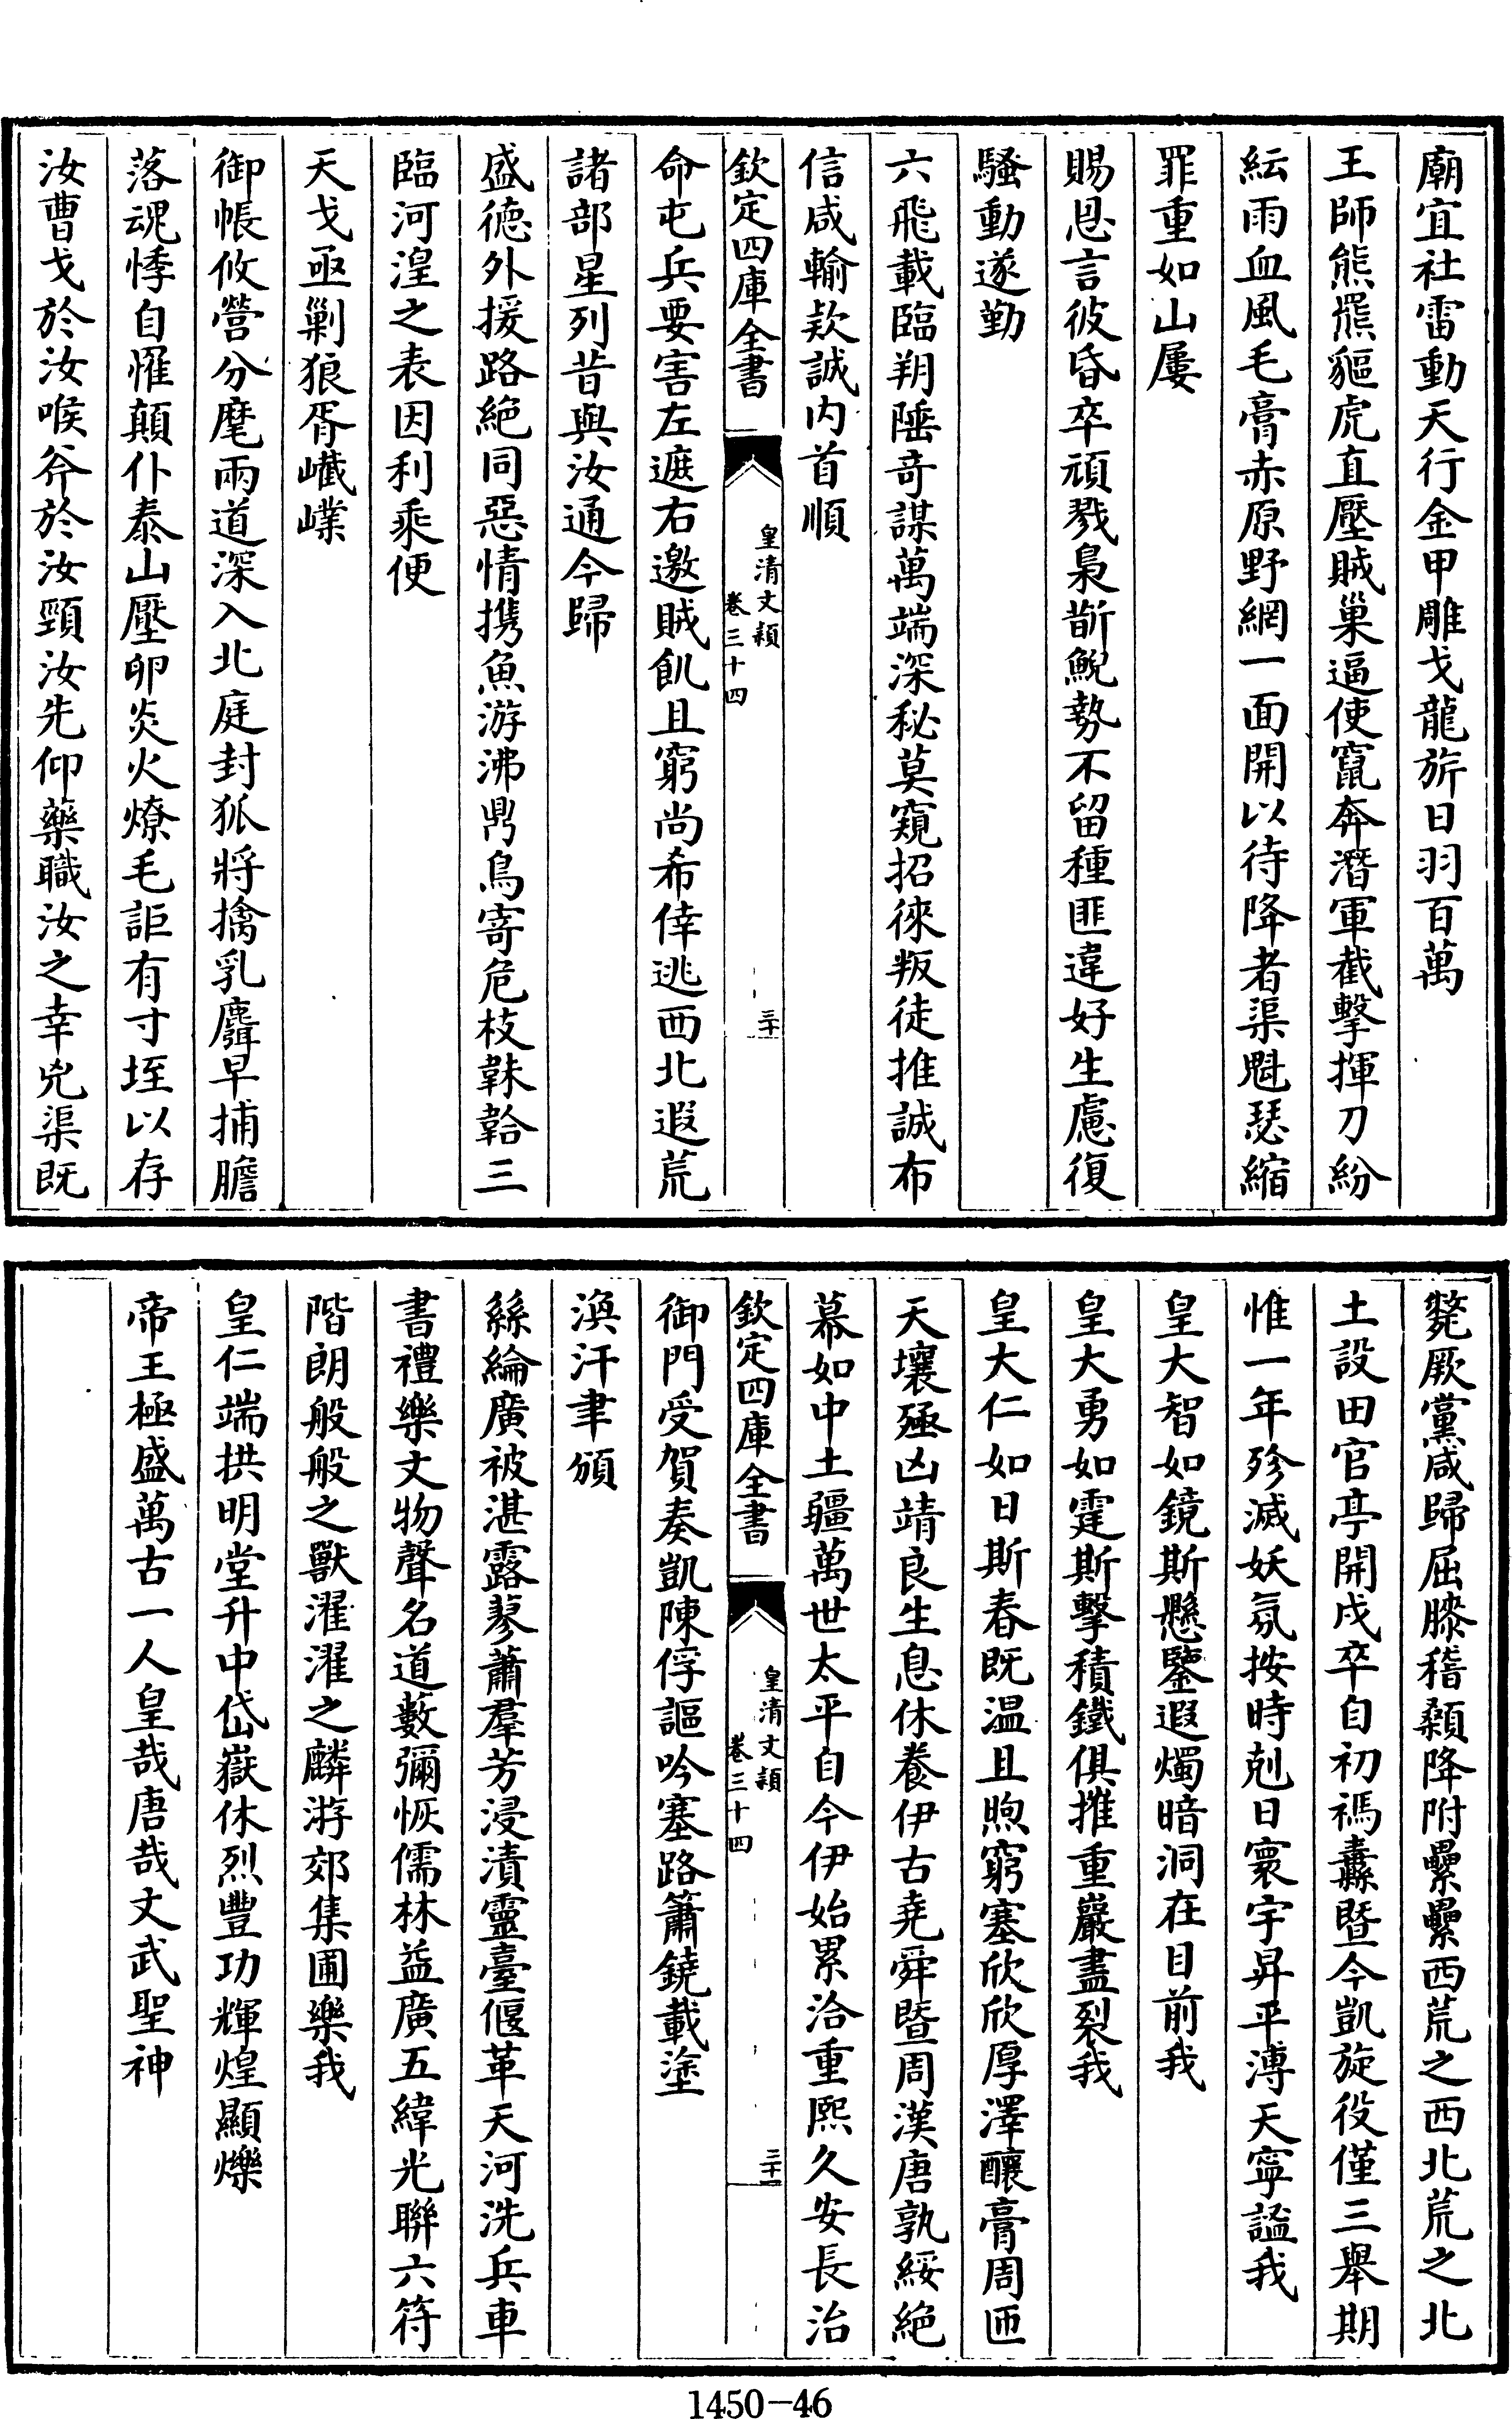 廟宜社雷動天行金甲雕戈龍旂日羽百萬
王師熊羆貙虎直壓賊巢逼使竄奔潛軍截擊揮刀紛
紜雨血風毛膏赤原野網一面開以待降者渠魁瑟縮
罪重如山屢
賜恩言彼昏卒頑戮梟斮鯢勢不留種匪違好生慮復
騷動遂勤
六飛載臨朔陲竒謀萬端深秘莫窺招徠叛徒推誠布
信咸輸欵誠内首順
欽定四庫全書
皇清文穎
卷三十四
三十
命屯兵要害左遮右邀賊飢且窮尚希倖逃西北遐荒
諸部星列昔與汝通今歸
盛德外援路絶同惡情携魚游沸鼎鳥寄危枝韎韐三
臨河湟之表因利乘便
天戈亟剿狼胥嶻嶫
御帳攸營分麾兩道深入北庭封狐將擒乳麛早捕膽
落魂悸自罹顛仆泰山壓卵炎火燎毛詎有寸垤以存
汝曹戈於汝喉斧於汝頸汝先仰藥職汝之幸兇渠既
斃厥黨咸歸屈膝稽顙降附纍纍西荒之西北荒之北
土設田官亭開戍卒自初禡纛暨今凱旋役僅三舉期
惟一年殄滅妖氛按時剋日寰宇昇平溥天寧謐我
皇大智如鏡斯懸鑒遐燭暗洞在目前我
皇大勇如霆斯擊積鐵俱摧重巖盡裂我
皇大仁如日斯春既温且煦窮塞欣欣厚澤釀膏周匝
天壤殛凶靖良生息休養伊古堯舜暨周漢唐孰綏絶
幕如中土疆萬世太平自今伊始累洽重熙久安長治
欽定四庫全書
皇清文穎
卷三十四
三十一
御門受賀奏凱陳俘謳吟塞路簫鐃載塗
渙汗聿頒
絲綸廣被湛露蓼蕭羣芳浸漬靈臺偃革天河洗兵車
書禮樂文物聲名道藪彌恢儒林益廣五緯光聯六符
階朗般般之獸濯濯之麟游郊集圃樂我
皇仁端拱明堂升中岱嶽休烈豐功輝煌顯爍
帝王極盛萬古一人皇哉唐哉文武聖神
1450-46